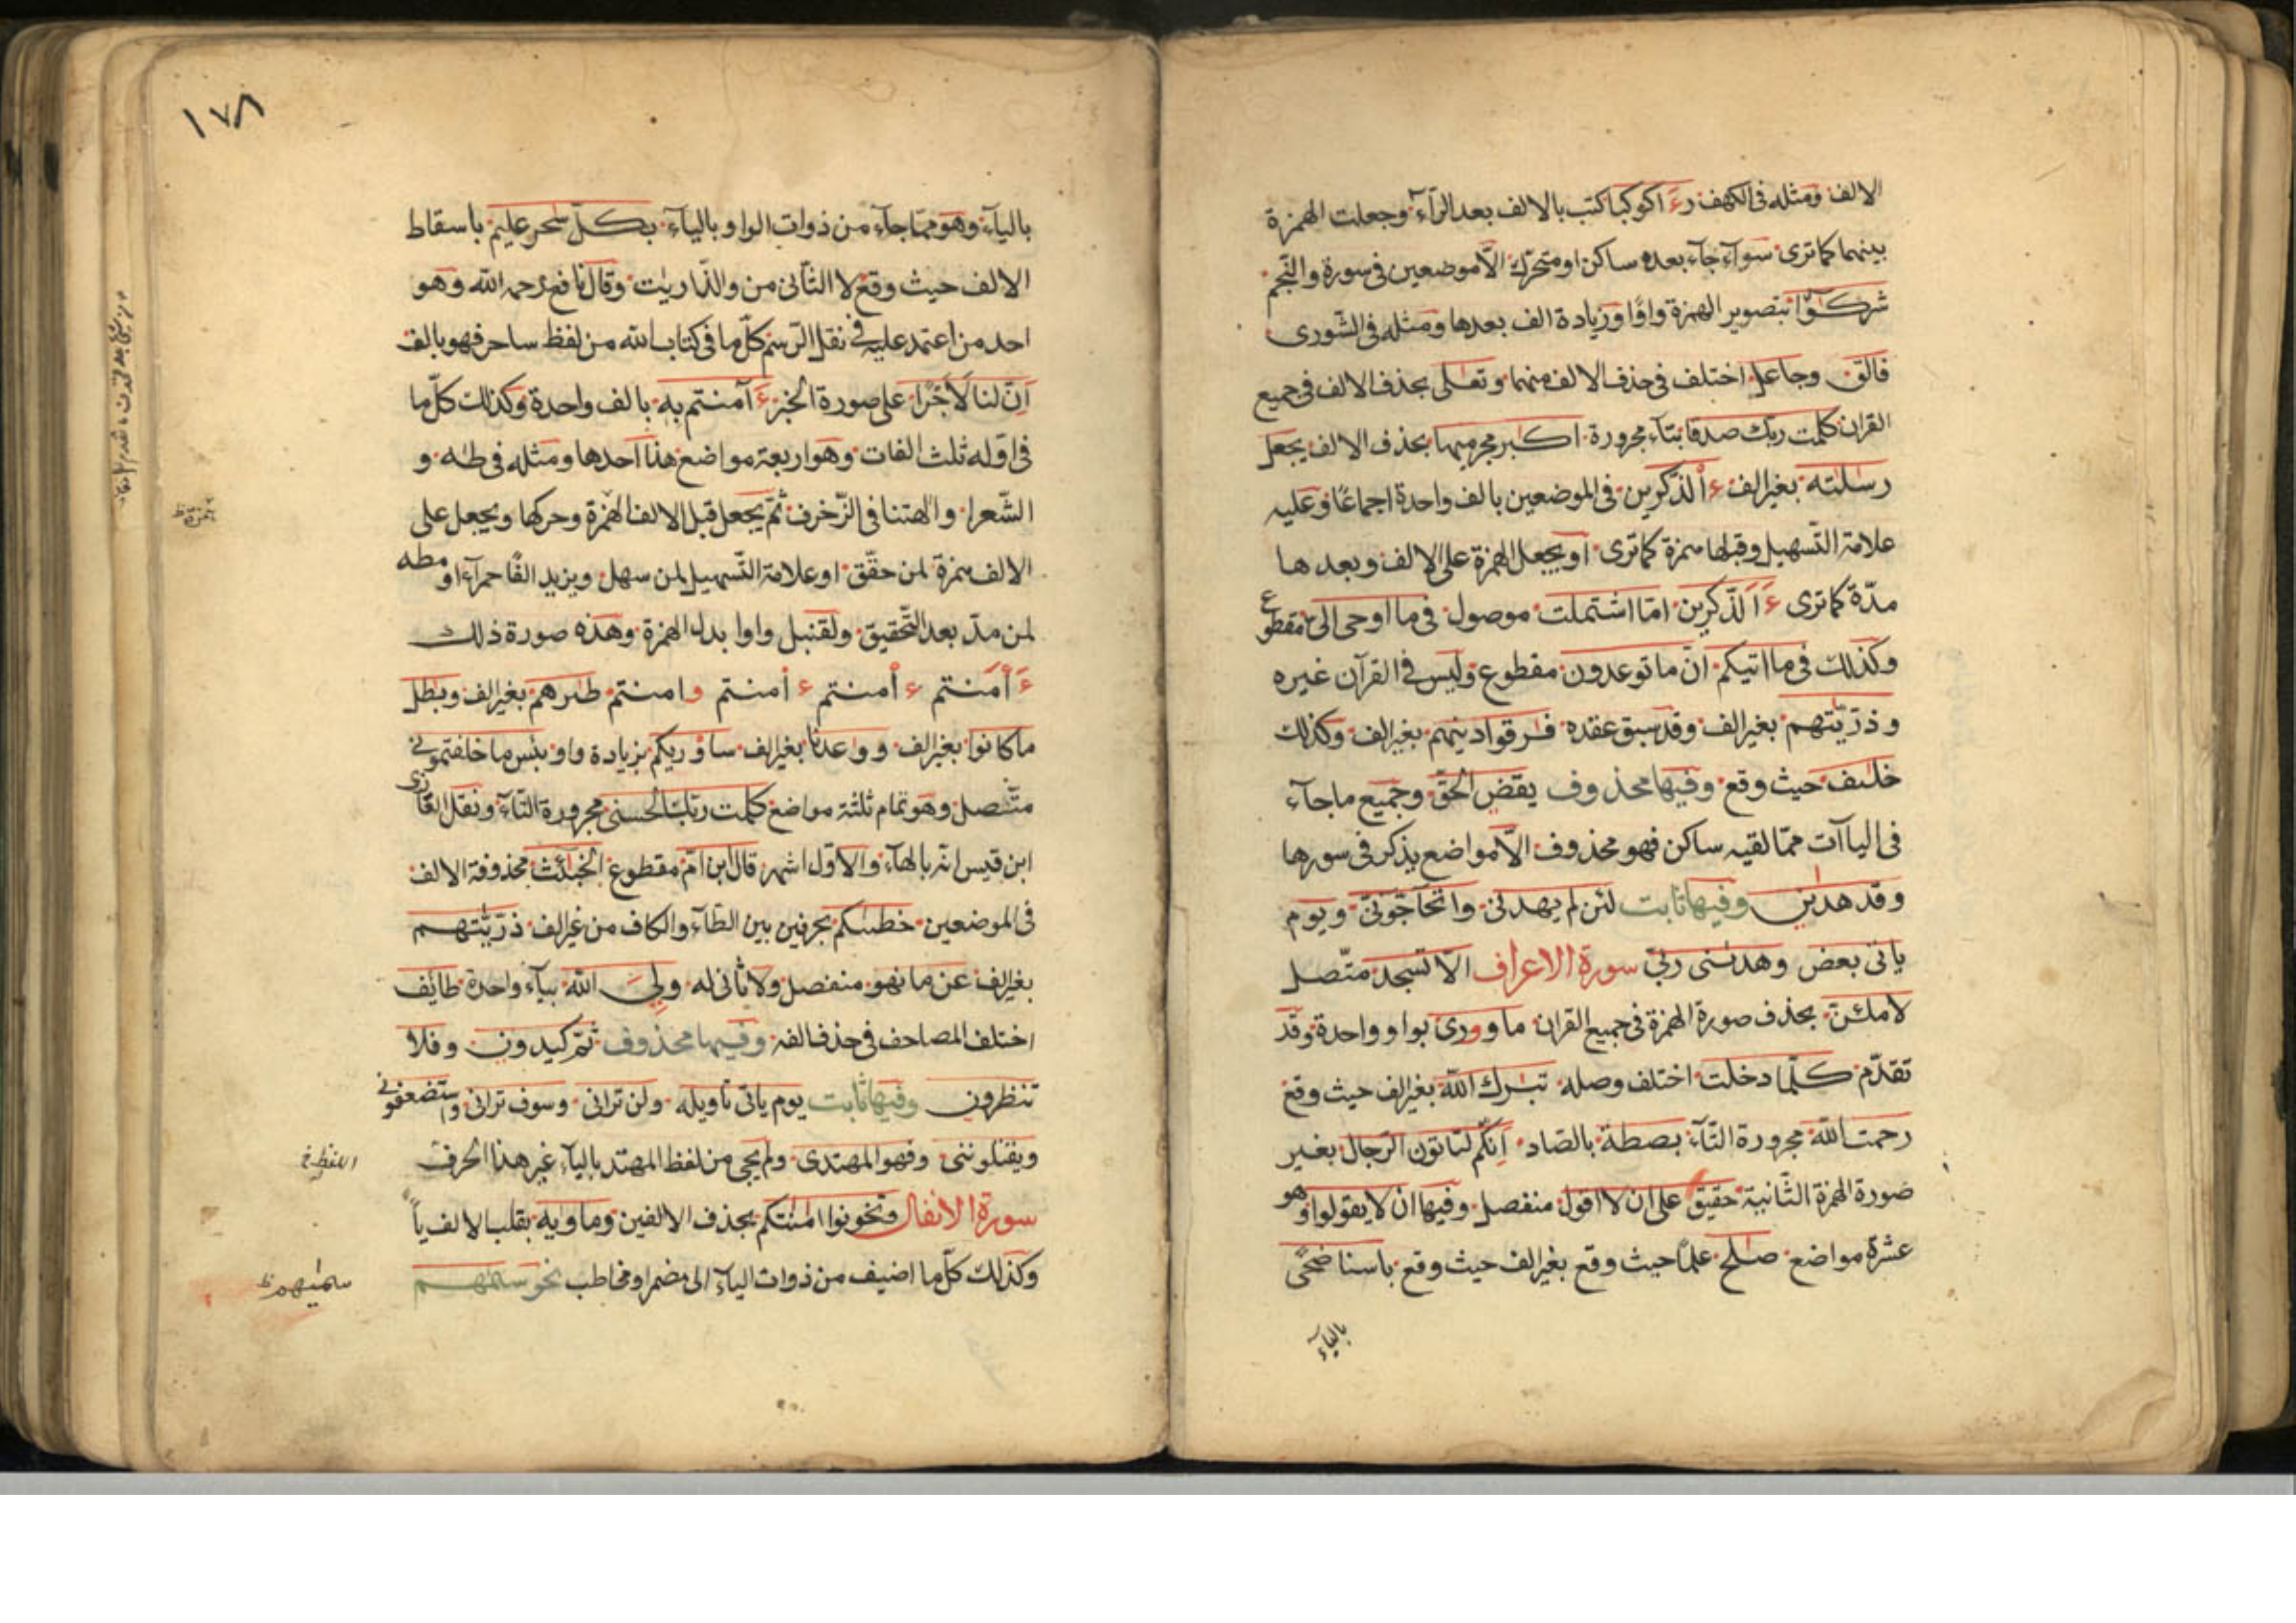 الالف ومثله فى الكهف رءاكوكبا كتب بالالف بعد الرآء وجعلت الهمزة
بينهما كما ترى سوآء جآء بعده ساكن او متحرّك الّا موضعين فى سورة والنّجم
شركـٰٓؤا بتصوير الهمزة واوًا وزيادة الف بعدها ومثله فى الشّورى
فالق وجاعل اختلف فى حذف الالف منهما وتعلى بحذف الالف فى جميع
القران كلمت ربك صدقا بتآء مجرورة اكبر مجرميها بحذف الالف يجعل
رسلته بغير الف ءٰالذّكرين فى الموضعين بالف واحدة اجماعًا وعليه
علامة التّسهيل وقبلها همزة كما ترى او يجعل الهمزة على الالف وبعدها
مدّة كما ترى ءَآلذّكرين امّا اشتملت موصول فى ما اوحى الىّ مقطوع
وكذلك فى ما اتيكم انّ ما توعدون مقطوع وليس فى القرآن غيره
وذرّيّتهم بغير الف وقد سبق عقده فرقوا دينهم بغير الف وكذلك
خلئف حيث وقع وفيها محذوف يقض الحقّ وجميع ما جآء
فى الياآت ممّا لقيه ساكن فهو محذوف الّا مواضع يذكر فى سورها
وقد هدين وفيها ثابت لئن لم يهدنى واتحاجّونّى ويوم
ياتى بعض وهدىنى ربّى سورة الاعراف الّا تسجد متّصل
لاملئنّ بحذف صورة الهمزة فى جميع القران ما وورى بواو واحدة وقد
تقدّم كلّما دخلت اختلف وصله تبٰرك اللّه بغير الف حيث وقع
رحمت اللّه مجرورة التّآء بصطة بالصّاد اَئنّكم لتاتون الرّجال بغير
صورة الهمزة الثّانية حقيق على ان لا اقول منفصل وفيها ان لا يقولوا وهو
عشرة مواضع صٰلح علمًا حيث وقع بغير الف حيث وقع باسنا ضحًى
باليآء
١٧٨
باليآء وهو ممّا جآء من ذوات الواو باليآء بكلّ سٰحر عليم باسقاط
الالف حيث وقع لا الثّانى من والذّاريٰت وقال نافع رحمه اللّه وهو
احد من اعتمد عليه فى نقل الرّسم كلّ ما فى كتاب اللّه من لفظ ساحر فهو بالف
اِنّ لنا لَاَجْرًا على صورة الخبر ءَآمنتم به بالف واحدة وكذلك كلّ ما
فى اوّله ثلث الفات وهو اربعة مواضع هذا احدها ومثله فى طٰه و
الشّعرا وءالهتنا فى الزّخرف ثمّ يجعل قبل الالف الهمزة وحركها ويجعل على
الالف همزة لمن حقّق او علامة التّسهيل لمن سهل ويزيد الفًا حمرآء او مطه
لمن مدّ بعد التّحقيق ولقنبل واوا بدل الهمزة وهذه صورة ذلك
ءَأٰمَنتم ءأمنتم ءأمنتم وامنتم طٰئرهم بغير الف وبٰطل
ما كانوا بغير الف ووٰعدنا بغير الف سأوريكم بزيادة واو بئس ما خلفتمونى
متّصل وهو تمام ثلثة مواضع كلمت ربّك الحسنى مجرورة التّآء ونقل الغازى
ابن قيس انّه بالهآء والاوّل اشهر قال ابن امّ مقطوع الخبٰئث محذوفة الالف
فى الموضعين خطيئتكم بحرفين بين الطّآء والكاف من غير الف ذرّيّتهم
بغير الف عن ما نهو منفصل ولا ثانى له ولىّ اللّه بيآء واحدة طائف
اختلف المصاحف فى حذف الفه وفيها محذوف ثمّ كيدون وفلا
تنظرون وفيها ثابت يوم ياتى تاويله ولن ترانى وسوف ترانى واستضعفونى
ويقتلوننى وفهو المهتدى ولم يجى من لفظ المهتد باليآء غير هذا الحرف
سورة الانفال وتخونوا امٰنٰتكم بحذف الالفين وماويه بقلب الالف يآ
وكذلك كلّ ما اضيف من ذوات اليآء الى مضمر او مخاطب نحو سيمٰهم
سيمٰيهم ظ